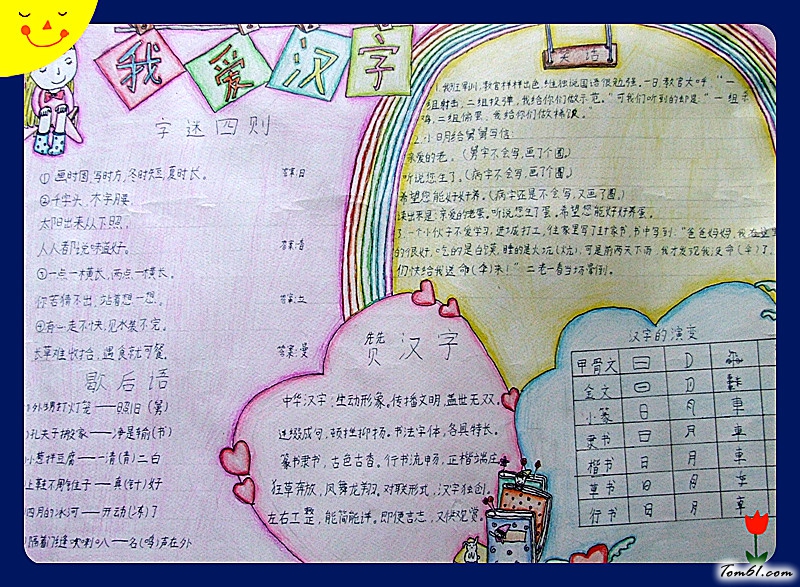 我爱汉字
字迷四则
①画时圆,写时方,冬时短,夏时长。 答案:日
②千字头,木字腰,
太阳出来从下照,
人人看隆说味道好。 答案:香
③一点一横长,两点一横长,
你若猜不出,站着想一想。 答案:立
④有一走不快,见水装不完,
长草难收拾,遇食就可餐。 答案:曼
歇后语
外甥打灯笼——照旧(舅)
孔夫子搬家——净是输(书)
小葱拌豆腐——一清(青)二白
上鞋不用锥子——真(针)好
四月的冰河——开动(冻)了
隔着门缝吹喇叭——名(鸣)声在外
笑话
我班军训,教官样样出色,经独说国语很勉强。一日,教官大呼:“一
组射击,二组投弹,我给你们做示范。”可我们听到的却是:“一组杀
鸡,二组偷蛋,我给你们做稀饭。”
2.小明给舅舅写信:
亲爱的老。(舅字不会写,画了个圈)
听说您生了。(病字不会写,画了个圈)
希望您能好好养。(病字还是不会写,又画了个圈)
读出来是:亲爱的老蛋。听说您生了蛋。希望您能好好养蛋。
3.一个小伙子不爱学习,进城打工,往家里写了封家书,书中写到:“爸爸妈妈,我在这里
的很好。吃的是白菜,睡的是大坑(炕),可是前两天下雨,我才发现我没命(伞)了。
们快给我送命(伞)来!”二老一看当场晕倒。
赞汉字
中华汉字,生动形象。传播文明,盖世无双。
连缀成句,顿挫抑扬。书法字体,各具特长。
篆书隶书,古色古香。行书流畅,正楷端庄。
狂草奔放,凤舞龙翔。对联形式,汉字独创。
左右工整,能简能详。即便言志,又供观赏。
汉字的演变
甲骨文
金文
小篆 日 月 車
隶书 日 月 車
楷书 日 月 車
草书 日 月
行书 日 月
Tom61.com